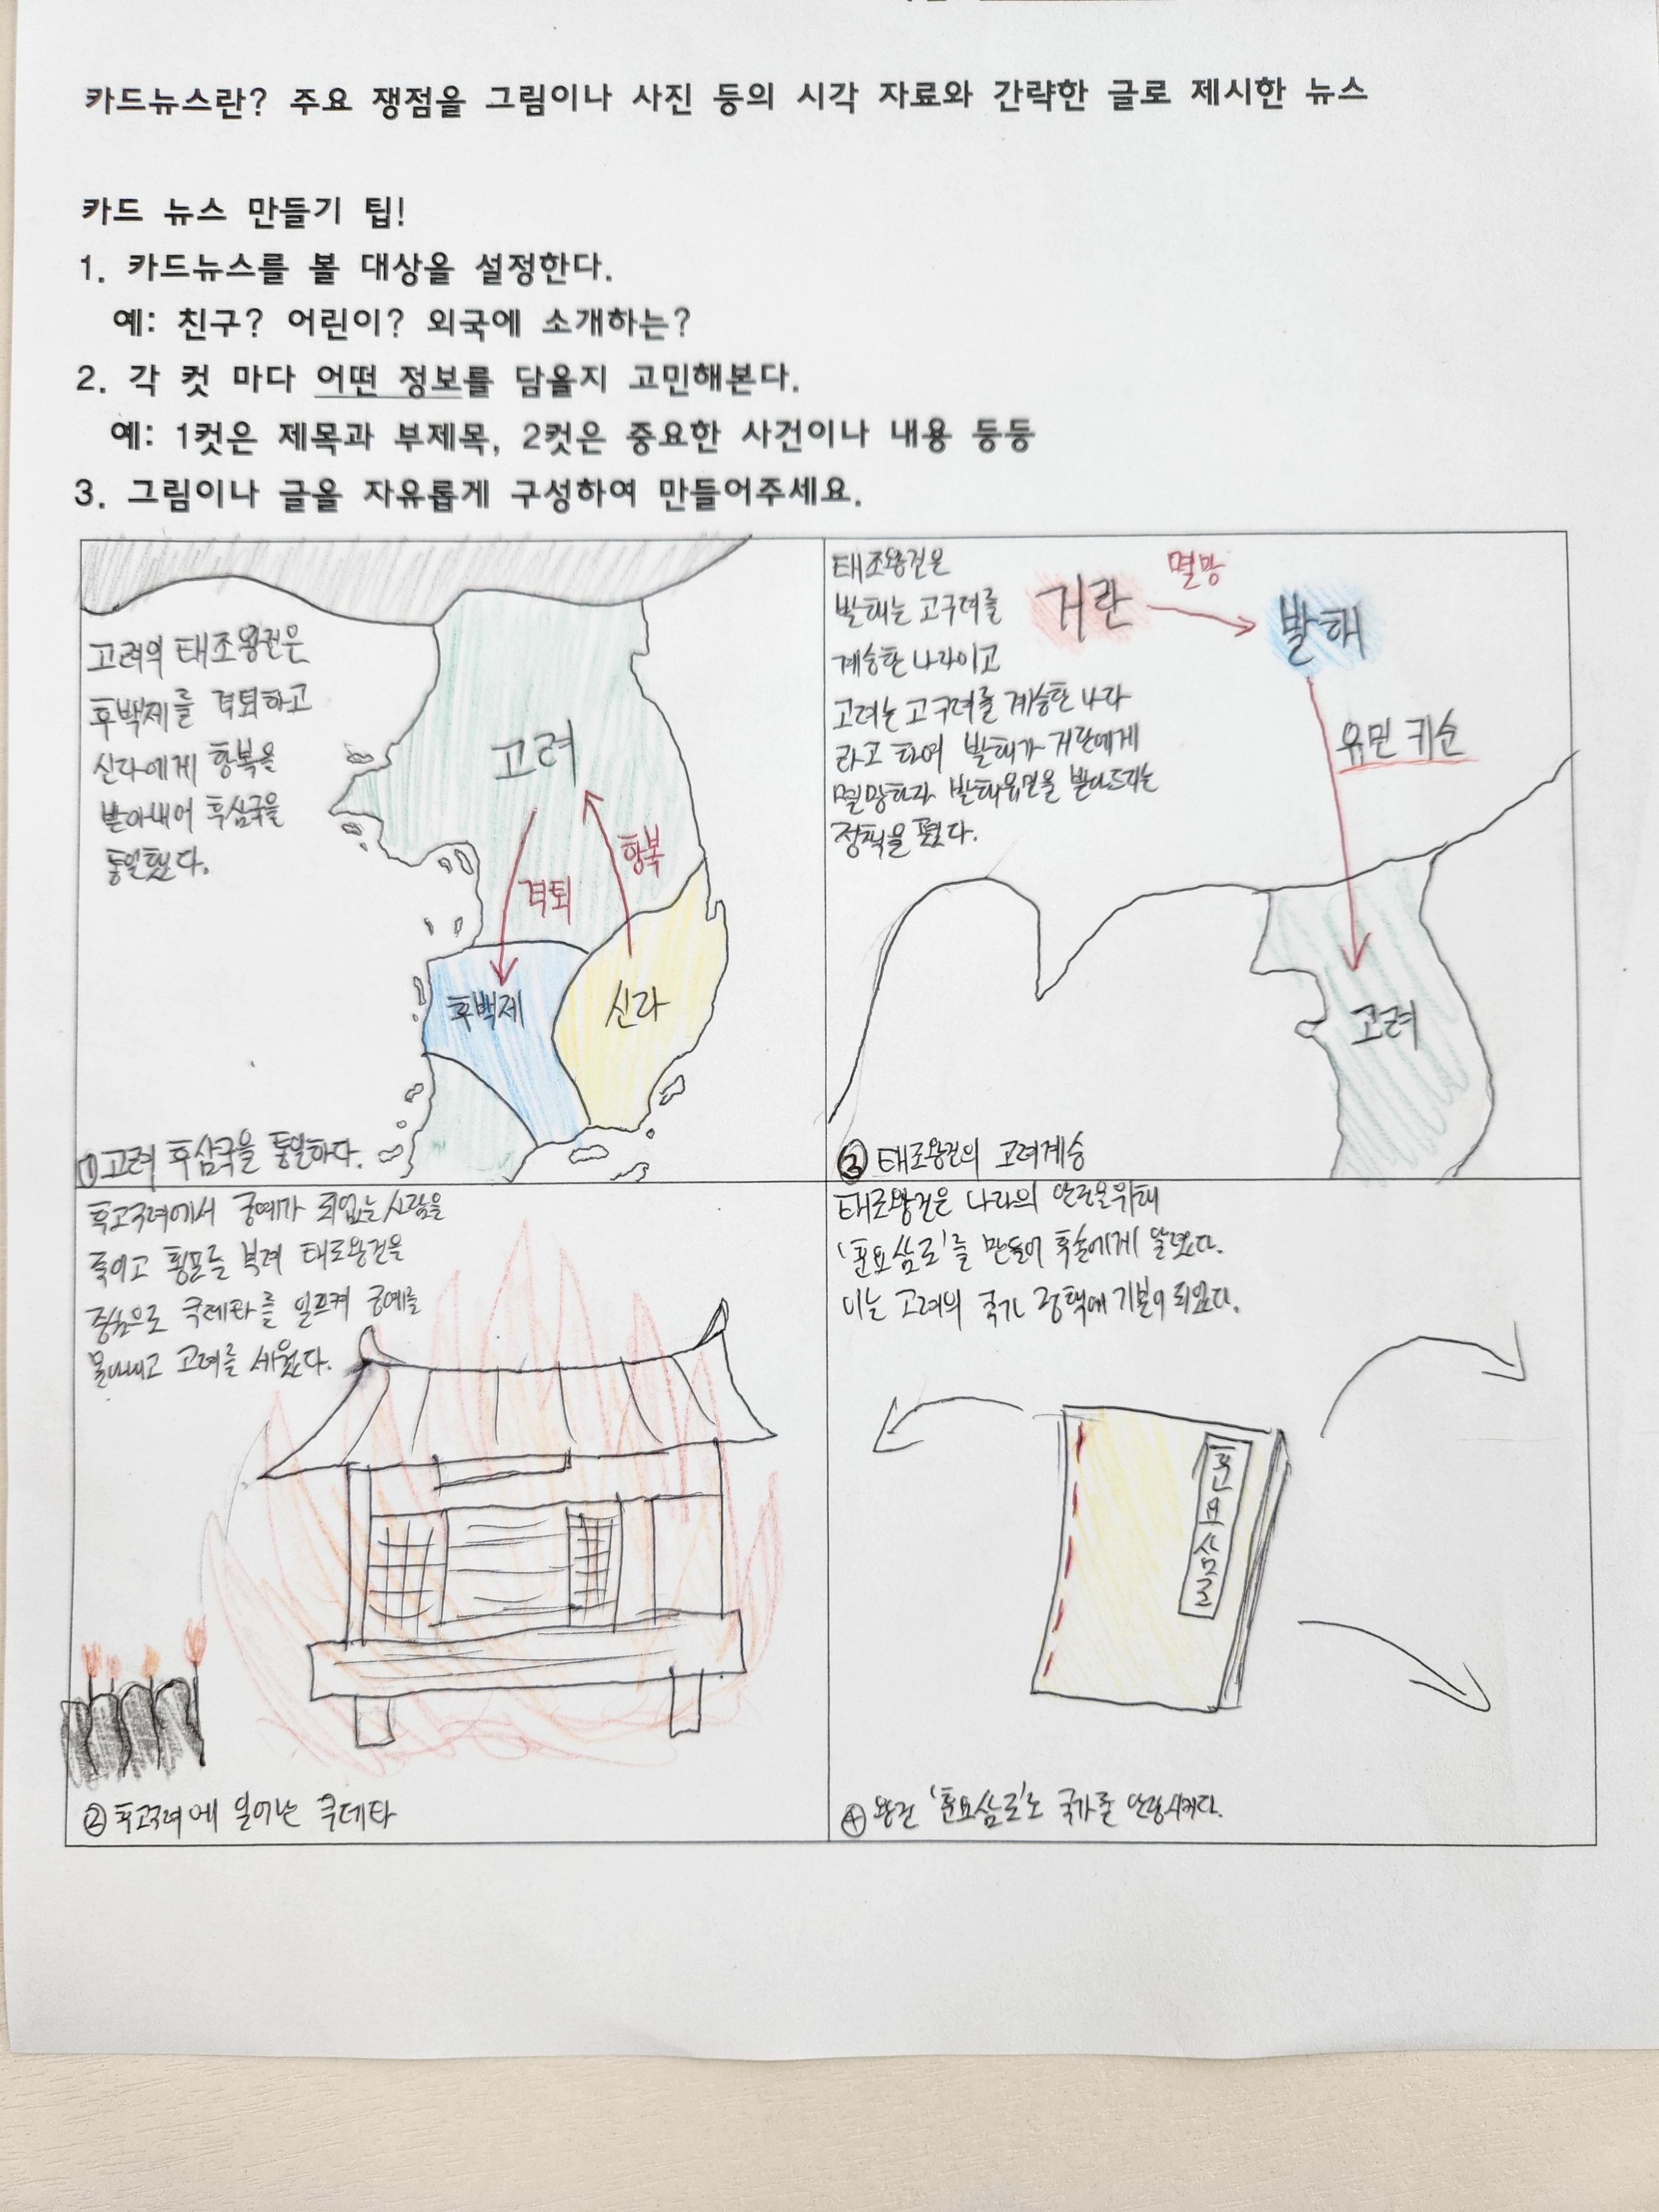 카드뉴스란? 주요 쟁점을 그림이나 사진 등의 시각 자료와 간략한 글로 제시한 뉴스
카드 뉴스 만들기 팁!
1. 카드뉴스를 볼 대상을 설정한다.
예: 친구? 어린이? 외국에 소개하는?
2. 각 컷 마다 어떤 정보를 담을지 고민해본다.
예: 1컷은 제목과 부제목, 2컷은 중요한 사건이나 내용 등등
3. 그림이나 글을 자유롭게 구성하여 만들어주세요.
고려의 태조왕건은
후백제를 격퇴하고
신라에게 항복을
받아내어 후삼국을
통일했다.
고려
격퇴
항복
후백제
신라
①고려 후삼국을 통일하다.
태조왕건은
발해는 고구려를
계승한 나라이고
고려는 고구려를 계승한 나라
라고 하여 발해가 거란에게
멸망하자 발해유민을 받아드리는
정책을 폈다.
거란
멸망
발해
유민 귀순
고려
③ 태조왕건의 고려계승
후고구려에서 궁예가 죄없는 사람을
죽이고 횡포를 부려 태조왕건을
중심으로 쿠데타를 일으켜 궁예를
몰아내고 고려를 세웠다.
②후고구려에 일어난 쿠데타
태조왕건은 나라의 안전을위해
'훈요십조'를 만들어 후손에게 알렸다.
이는 고려의 국가 정책에 기본이 되었다.
④왕건 '훈요십조'로 국가를 안정시키다.